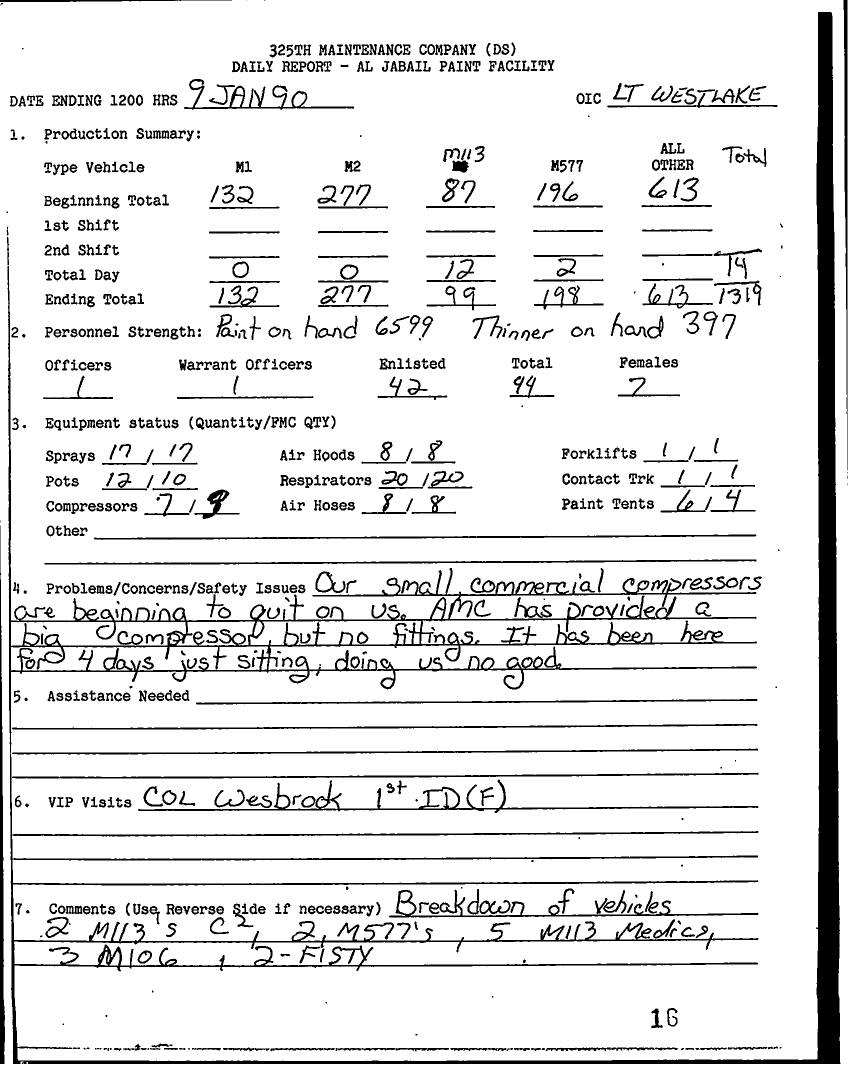 325TH MAINTENANCE COMPANY (DS)
DAILY REPORT - AL JABAIL PAINT FACILITY
DATE ENDING 1200 HRS 9 JAN 90 OIC LT WESTLAKE
1. Production Summary:
Type Vehicle M1 M2 M113 M577 ALL OTHER Total
Beginning Total 132 277 87 196 613
1st Shift
2nd Shift
Total Day 0 0 12 2 14
Ending Total 132 277 99 198 613 1319
2. Personnel Strength: Paint on hand 6599 Thinner on hand 397
Officers Warrant Officers Enlisted Total Females
1 1 42 44 7
3. Equipment status (Quantity/FMC QTY)
Sprays 17 / 17 Air Hoods 8 / 8 Forklifts 1 / 1
Pots 12 / 10 Respirators 20 / 20 Contact Trk 1 / 1
Compressors 7 / Air Hoses 8 / 8 Paint Tents 6 / 4
Other
4. Problems/Concerns/Safety Issues Our small commercial compressors
are beginning to quit on us. AMC has provided a
big compressor, but no fittings. It has been here
for 4 days just sitting, doing us no good.
5. Assistance Needed
6. VIP Visits COL Wesbrock 1st ID(F)
7. Comments (Use Reverse Side if necessary) Breakdown of vehicles
2 M113's C2, 2, M577's, 5 M113 Medics,
3 M106, 2-FISTY
16